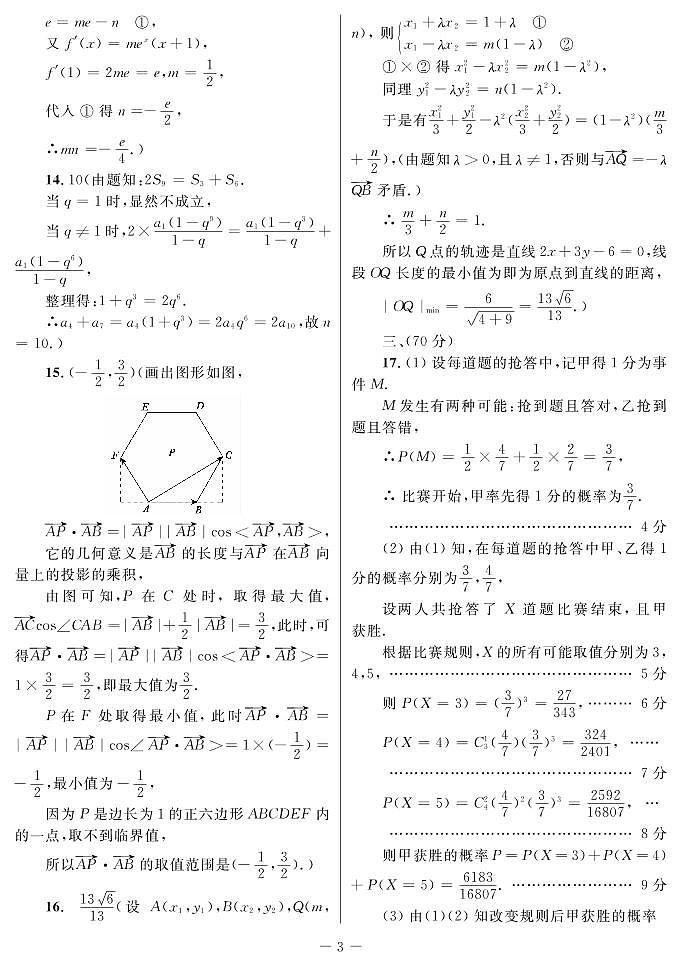 e = me − n ①,
又 f′(x) = meˣ(x+1),
f′(1) = 2me = e, m = 1/2,
代入 ① 得 n = − e/2,
∴mn = − e/4.)
14. 10(由题知:2S₉ = S₃ + S₆.
当 q = 1 时,显然不成立,
当 q ≠ 1 时,2× a₁(1−q⁹)/(1−q) = a₁(1−q³)/(1−q) +
a₁(1−q⁶)/(1−q),
整理得:1 + q³ = 2q⁶.
∴a₄ + a₇ = a₄(1+q³) = 2a₄q⁶ = 2a₁₀,故 n
= 10.)
15. (− 1/2, 3/2)(画出图形如图,
E D
F P C
A B
AP⃗ · AB⃗ = | AP⃗ | | AB⃗ | cos < AP⃗, AB⃗ >,
它的几何意义是 AB⃗ 的长度与 AP⃗ 在 AB⃗ 向
量上的投影的乘积,
由图可知,P 在 C 处时,取得最大值,
AC⃗cos∠CAB = | AB⃗ | + 1/2 | AB⃗ | = 3/2,此时,可
得 AP⃗ · AB⃗ = | AP⃗ | | AB⃗ | cos < AP⃗ · AB⃗ > =
1 × 3/2 = 3/2,即最大值为 3/2.
P 在 F 处取得最小值,此时 AP⃗ · AB⃗ =
| AP⃗ | | AB⃗ | cos∠ AP⃗ · AB⃗ > = 1×(− 1/2) =
− 1/2,最小值为 − 1/2,
因为 P 是边长为 1 的正六边形 ABCDEF 内
的一点,取不到临界值,
所以 AP⃗ · AB⃗ 的取值范围是(− 1/2, 3/2).)
16. 13√6/13 (设 A(x₁,y₁),B(x₂,y₂),Q(m,
n),则{x₁ + λx₂ = 1 + λ ①
x₁ − λx₂ = m(1−λ) ②
①×② 得 x₁² − λx₂² = m(1−λ²),
同理 y₁² − λy₂² = n(1−λ²).
于是有 x₁²/3 + y₁²/2 − λ²(x₂²/3 + y₂²/2) = (1−λ²)(m/3
+ n/2),(由题知 λ > 0,且 λ ≠ 1,否则与 AQ⃗ = −λ
QB⃗ 矛盾.)
∴ m/3 + n/2 = 1.
所以 Q 点的轨迹是直线 2x + 3y − 6 = 0,线
段 OQ 长度的最小值为即为原点到直线的距离,
| OQ |min = 6/√(4+9) = 13√6/13.)
三、(70 分)
17. (1) 设每道题的抢答中,记甲得 1 分为事
件 M.
M 发生有两种可能:抢到题且答对,乙抢到
题且答错,
∴P(M) = 1/2 × 4/7 + 1/2 × 2/7 = 3/7,
∴ 比赛开始,甲率先得 1 分的概率为 3/7.
………………………………………… 4 分
(2) 由(1) 知,在每道题的抢答中甲、乙得 1
分的概率分别为 3/7, 4/7,
设两人共抢答了 X 道题比赛结束,且甲
获胜.
根据比赛规则,X 的所有可能取值分别为 3,
4,5, ………………………………………… 5 分
则 P(X = 3) = (3/7)³ = 27/343, ……… 6 分
P(X = 4) = C₃¹(4/7)(3/7)³ = 324/2401, ……
………………………………………… 7 分
P(X = 5) = C₄²(4/7)²(3/7)³ = 2592/16807, …
………………………………………… 8 分
则甲获胜的概率 P = P(X = 3) + P(X = 4)
+ P(X = 5) = 6183/16807. …………………… 9 分
(3) 由(1)(2) 知改变规则后甲获胜的概率
— 3 —